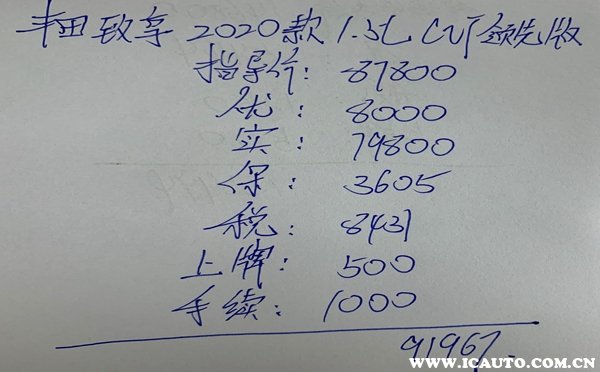 丰田致享 2020款 1.5L CVT领先版
指导价: 87800
优: 8000
实: 79800
保: 3605
税: 8431
上牌: 500
手续: 1000
91967.
www.icauto.com.cn